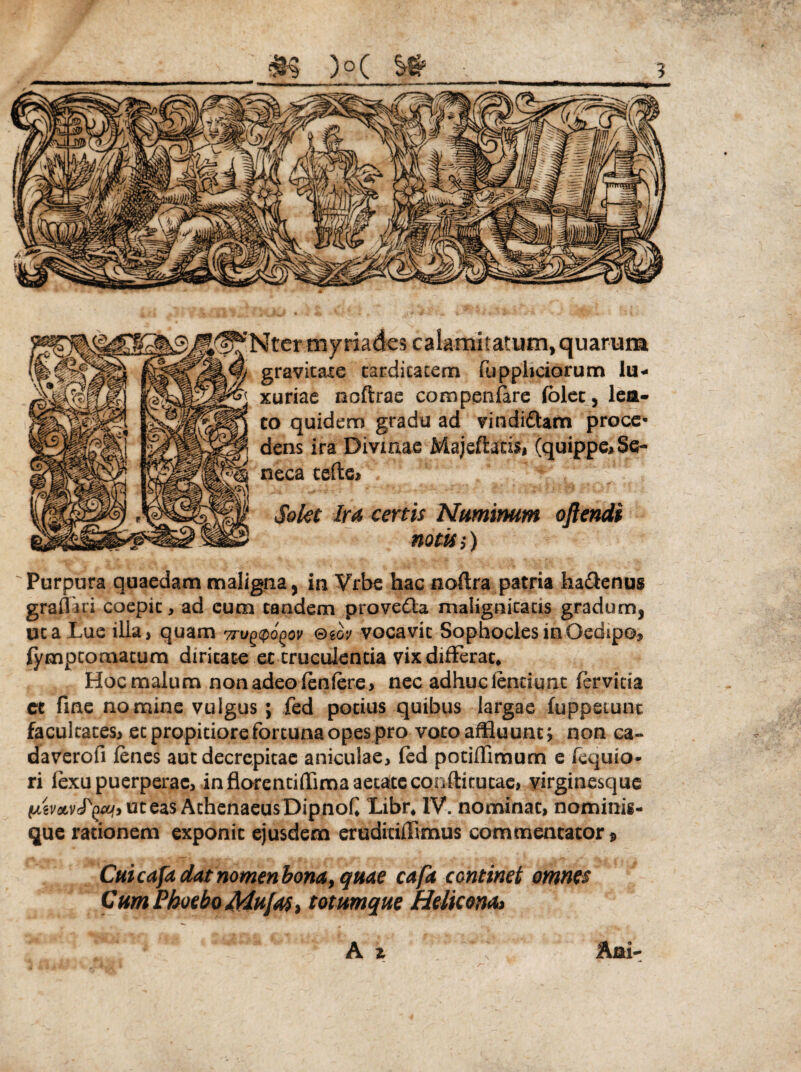 )o( 3
INter myriades calamitatum, quarum
gravitate tarditatem ſuppliciorum lu-
xuriae noſtrae compenſare ſolet, len-
to quidem gradu ad vindictam proce-
dens ira Divinae Majeſtatis, (quippe, Se-
neca teſte,
Solet Ira certis Numinum oſtendi
notis;)
Purpura quaedam maligna, in Vrbe hac noſtra patria hactenus
graſſari coepit, ad eum tandem provecta malignitatis gradum,
ut a Lue illa, quam πυρφόρον Θεὸν vocavit Sophocles in Oedipo,
ſymptomatum diritate et truculentia vix differat.
Hoc malum non adeo ſenſere, nec adhuc ſentiunt ſervitia
et ſine nomine vulgus; ſed potius quibus largae ſuppetunt
facultates, et propitiore fortuna opes pro voto affluunt; non ca-
daveroſi ſenes aut decrepitae aniculae, ſed potiſſimum e ſequio-
ri ſexu puerperae, in florentiſſima aetate conſtitutae, virginesque
μένανδραι, ut eas Athenaeus Dipnoſ. Libr. IV. nominat, nominis-
que rationem exponit ejusdem eruditiſſimus commentator,
Cui caſa dat nomen bona, quae caſa continet omnes
Cum Phoebo Muſas, totumque Helicona,
A 2 Ani-